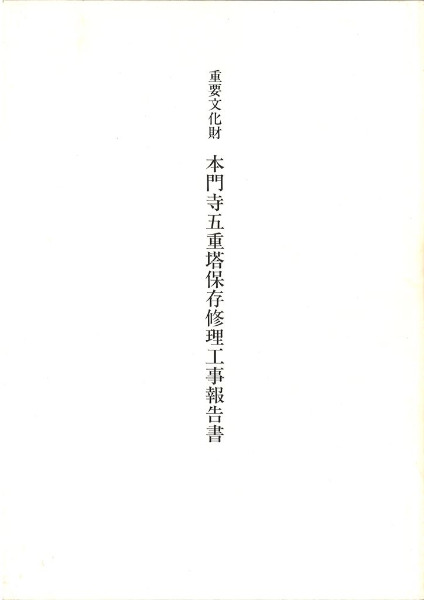 重要文化財 本門寺五重塔保存修理工事報告書